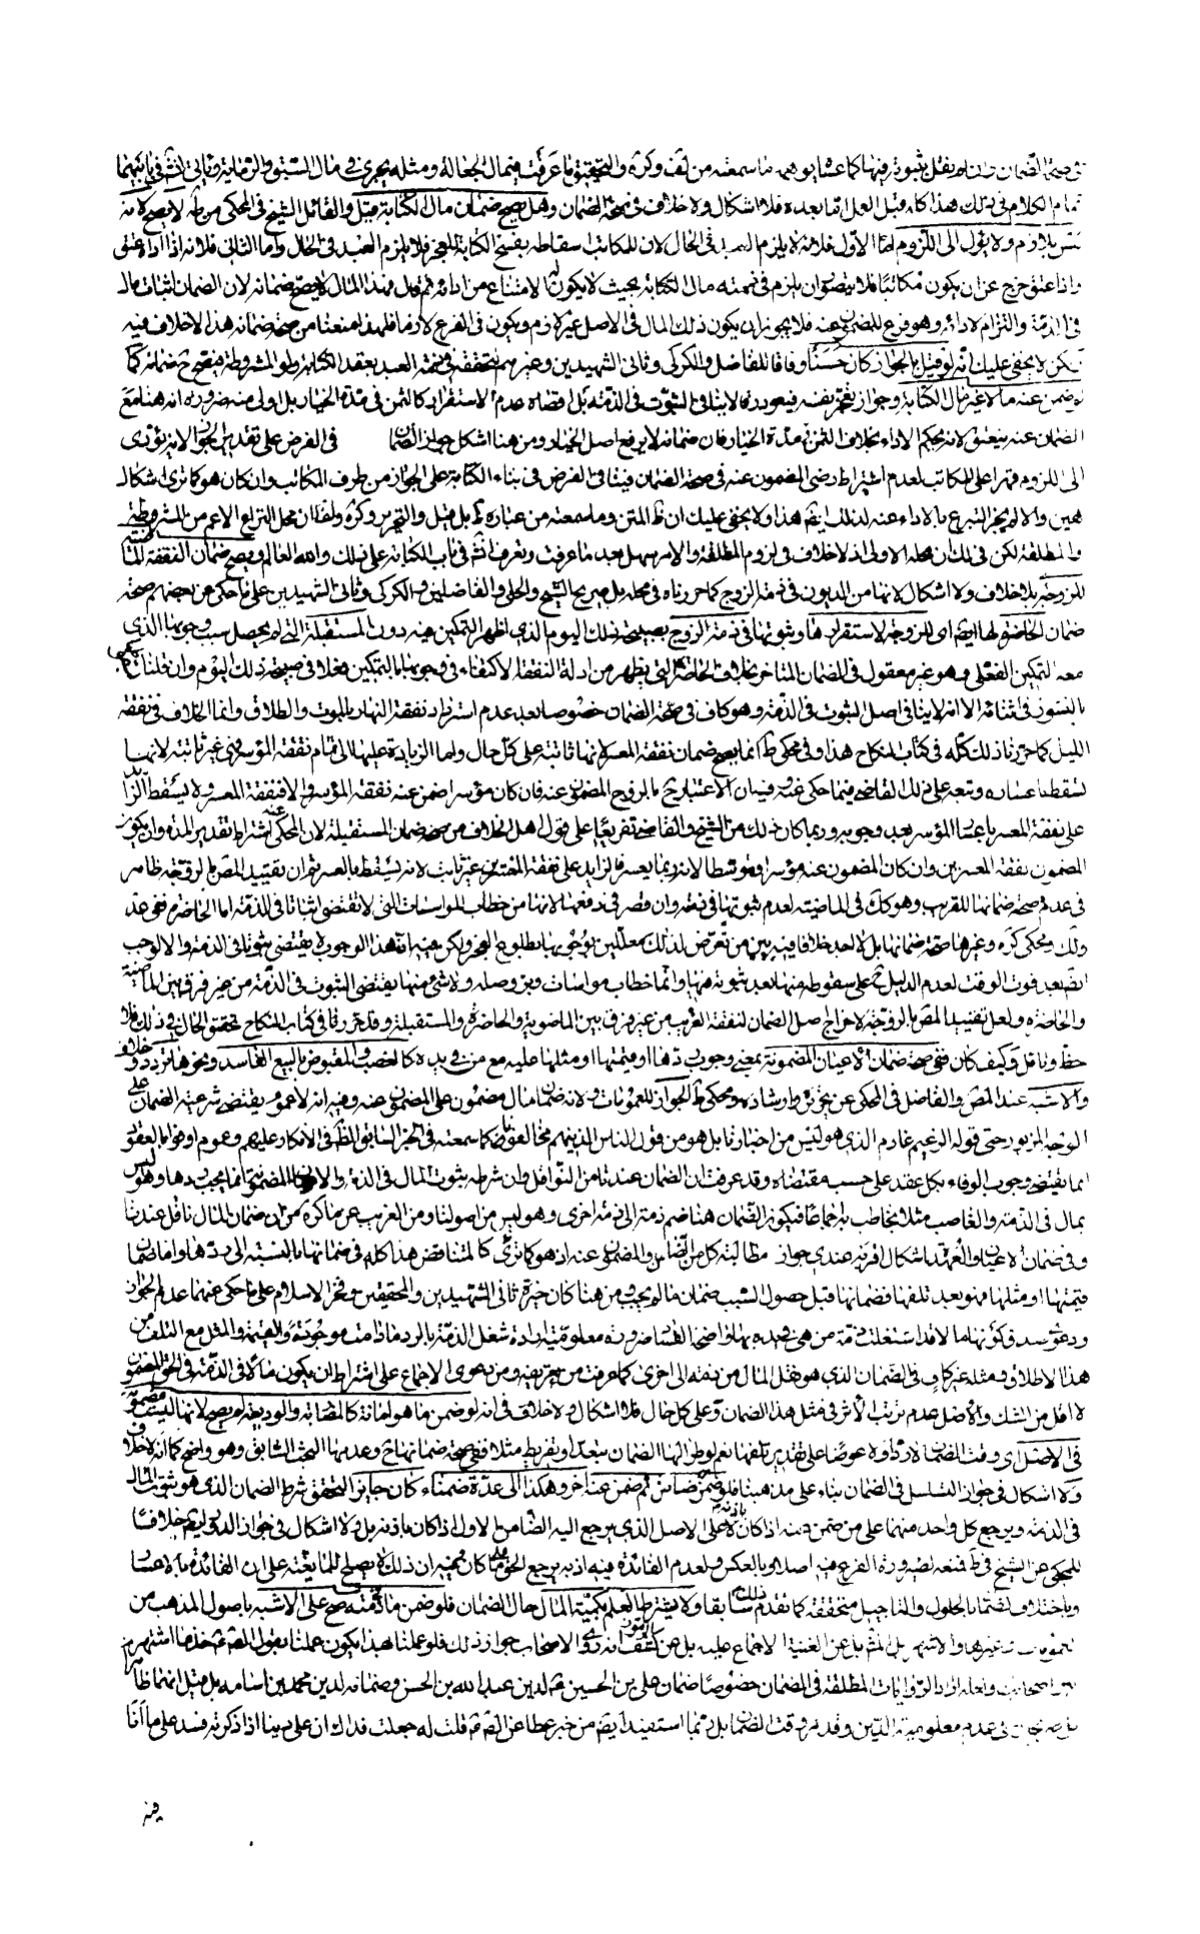 تمام الكلام في ذلك هذا كله قبل العمل اما بعده فلا اشكال ولا خلاف في صحة الضمان وهل يصح ضمان مال الكتابة قيل والقائل الشيخ في المحكي من ط لا يصح لانه
ليس بلازم ولا يؤول الى اللزوم اما الأول فلانه لا يلزم العبد في الحال لان للمكاتب اسقاطه بفسخ الكتابة للعجز فلا يلزم العبد في الحال واما الثاني فلانه اذا اداه عتق
واذا عتق خرج عن ان يكون مكاتبا فلا يتصور ان يلزم في ذمته مال الكتابة بحيث لا يكون له الامتناع من ادائه ثم قال فهذا المال لا يصح ضمانه لان الضمان اثبات مال
في الذمة والتزام لادائه وهو فرع للمضمون عنه فلا يجوز ان يكون ذلك المال في الاصل غير لازم ويكون في الفرع لازما فلهذا منعنا من صحة ضمانه هذا لا خلاف فيه
لكن لا يخفى عليك انه لو قيل بالجواز كان حسنا وفاقا للفاضل والكركي وثاني الشهيدين وغيرهم لتحققه في ذمة العبد بعقد الكتابة ولو المشروطة فيصح ضمانه كما
لو ضمن عنه مالا غير مال الكتابة وجواز تعجيز نفسه فيعود رقا لا ينافي الثبوت في الذمة بل اقصاه عدم الاستقرار كالثمن في مدة الخيار بل اولى منه ضرورة انه هنا مع
الضمان عنه ينعتق لانه بحكم الاداء بخلاف الثمن في مدة الخيار فان ضمانه لا يرفع اصل الخيار ومن هنا اشكل جواز الضمان في الفرض على تقدير الجواز لانه يؤدي
الى اللزوم قهرا على المكاتب لعدم اشتراط رضى المضمون عنه في صحة الضمان فينافي الفرض في بناء الكتابة على الجواز من طرف المكاتب وان كان هو كما ترى اشكال
هين والا لم يجز التبرع بالاداء عنه لذلك ايضا هذا ولا يخفى عليك ان ظ المتن وما سمعته من عبارة ط بل قيل والتحرير وكره ولف ان محل النزاع الاعم من المشروطة
والمطلقة لكن في لك ان محله الاولى اذ لا خلاف في لزوم المطلقة والامر سهل بعد ما عرفت وتعرف انش في باب الكتابة على ذلك والله العالم ويصح ضمان النفقة الماضية
للزوجة بلا خلاف ولا اشكال لانها من الديون في ذمة الزوج كما حررناه في محله بل صريح الشيخ والحلي والفاضلين والكركي وثاني الشهيدين على ما حكي عن بعضهم صحة
ضمان الحاضرة لها ايضا اي للزوجة لاستقرارها وثبوتها في ذمة الزوج بصبيحة ذلك اليوم الذي اظهر التمكين فيه دون المستقبلة التي لم يحصل سبب وجوبها الذي
معه التمكين الفعلي وهو غير معقول في الضمان المتاخر بخلاف الحاضرة التي يظهر من ادلة النفقة الاكتفاء في وجوبها بالتمكين فعلا في صبيحة ذلك اليوم وان قلنا
بالنشوز في اثنائه الا انه لا ينافي اصل الثبوت في الذمة وهو كاف في صحة الضمان خصوصا بعد عدم استرداد نفقة النهار بالموت والطلاق وانما الخلاف في نفقة
الليل كما حررنا ذلك كله في كتاب النكاح هذا وفي محكي ط انما يصح ضمان نفقة المعسر لانها ثابتة على كل حال واما الزيادة عليها الى تمام نفقة المؤسر فهي غير ثابتة لانها
تسقط باعساره وتبعه على ذلك القاضي فيما حكي عنه وفيه ان الاعتبار ح بالزوج المضمون عنه فان كان مؤسرا ضمن عنه نفقة المؤسر والا فنفقة المعسر ولا يسقط الزائد
على نفقة المعسر باعسار المؤسر بعد وجوبه وربما كان ذلك من الشيخ والقاضي تفريعا على قول اهل الخلاف من صحة ضمان المستقبلة لان المحكي عنه اشتراط تقدير المدة وان يكون
المضمون نفقة المعسرين وان كان المضمون عنه مؤسرا او متوسطا لانه ربما يعسر فالزايد على نفقة المعسرين غير ثابت لانه يسقط بالعسر ثم ان تقييد المص بالزوجة ظاهر
في عدم صحة ضمانها للقريب وهو كك في الماضية لعدم ثبوتها في ذمته وان قصر في دفعها لانها من خطاب المواسات التي لا تقتضي اثباتا في الذمة اما الحاضرة ففي عد
ولك ومحكي كره وغيرها صحة ضمانها بل لا اجد خلافا فيه بين من تعرض لذلك معللين بوجوبها بطلوع الفجر ولكن فيه ان هذا الوجوب لا يقتضي ثبوتا في الذمة والا لوجب
ايضا بعد فوت الوقت لعدم الدليل ح على سقوطه منها بعد ثبوته فيها وانما خطاب مواسات وبر وصله ولا شيء منها يقتضي الثبوت في الذمة من غير فرق بين الماضية
والحاضرة ولعل تقييد المص بالزوجة لاخراج اصل الضمان لنفقة القريب من غير فرق بين الماضية والحاضرة والمستقبلة وقد حررنا في كتاب النكاح تحقق الحال في ذلك فلا
حظ وتامل وكيف كان ففي صحة ضمان الاعيان المضمونة بمعنى وجوب ردها او قيمتها او مثلها عليه مع من في يده كالغصب والمقبوض بالبيع الفاسد ونحوها تردد وخلاف
والاشبه عند المص والفاضل في المحكي عن تحريره وارشاده ومحكي ط الجواز للعمومات ولانه ضمان مال مضمون على المضمون عنه وفيه انه لا عموم يقتضي شرعية الضمان على
الوجه المزبور حتى قوله الزعيم غارم الذي هو ليس من اخبارنا بل هو من قول الناس الذي فيهم مخالفونا كما سمعته في الخبر السابق الظ في الانكار عليهم وعموم اوفوا بالعقود
انما يقتضي وجوب الوفاء بكل عقد على حسب مقتضاه وقد عرفت ان الضمان عندنا من النواقل وان شرطه ثبوت المال في الذمة والاعيان المضمونة انما يجب ردها وهو ليس
بمال في الذمة والغاصب مثلا مخاطب به اجماعا فيكون الضمان هنا ضم ذمة الى ذمة اخرى وهو ليس من اصولنا ومن الغريب عن ما كره من ان ضمان المال ناقل عندنا
وفي ضمان الاعيان والعهدة اشكال اقربه عندي جواز مطالبة كل من الضامن والمضمون عنه اذ هو كما ترى كالمتناقض هذا كله في ضمانها بالنسبة الى ردها واما ضمان
قيمتها او مثلها فهو بعد تلفها فضمانها قبل حصول السبب ضمان ما لم يجب ومن هنا كان خيرة ثاني الشهيدين والمحققين وفخر الاسلام على ما حكي عنهما عدم الجواز
هذا الاطلاق ومثله غير كاف في الضمان الذي هو نقل المال من ذمته الى اخرى كما عرفت من تعريفه ومن دعوى الاجماع على اشتراط ان يكون مالا في الذمة في الحق المضمون
لا اقل من الشك والاصل عدم ترتب الاثر في مثل هذا الضمان وعلى كل حال فلا اشكال ولا خلاف في انه لو ضمن ما هو امانة كالمضاربة والوديعة لم يصح لانها ليست مضمونة
في الاصل اي وقت الضمان لا ردا ولا عوضا على تقدير تلفها نعم لو طرأ لها الضمان بتعد او تفريط مثلا ففي صحة ضمانها ح وعدمها البحث السابق وهو واضح كما انه لا خلاف
ولا اشكال في جواز التسلسل في الضمان بناء على مذهبنا فلو ضمن ضامن ثم ضمن عنه آخر وهكذا الى عدة ضمناء كان جايزا لتحقق شرط الضمان الذي هو ثبوت المال
في الذمة ويرجع كل واحد منهما على من ضمن عنه اذا كان باذنه لا على الاصل الذي يرجع اليه الضامن الاول اذا كان باذنه بل ولا اشكال في جواز الدور ايضا خلافا
للمحكي عن الشيخ في ط فمنعه لصيرورة الفرع فيه اصلا وبالعكس ولعدم الفائدة فيه اذ به يرجع الحق كما كان وفيه ان ذلك لا يصلح للمانعية على ان الفائدة بالاعسار
وباختلاف الضمان بالحلول والتاجيل متحققة كما تقدم ذلك سابقا ولا يشترط العلم بكمية المال حال الضمان فلو ضمن ما في ذمته صح على الاشبه باصول المذهب من